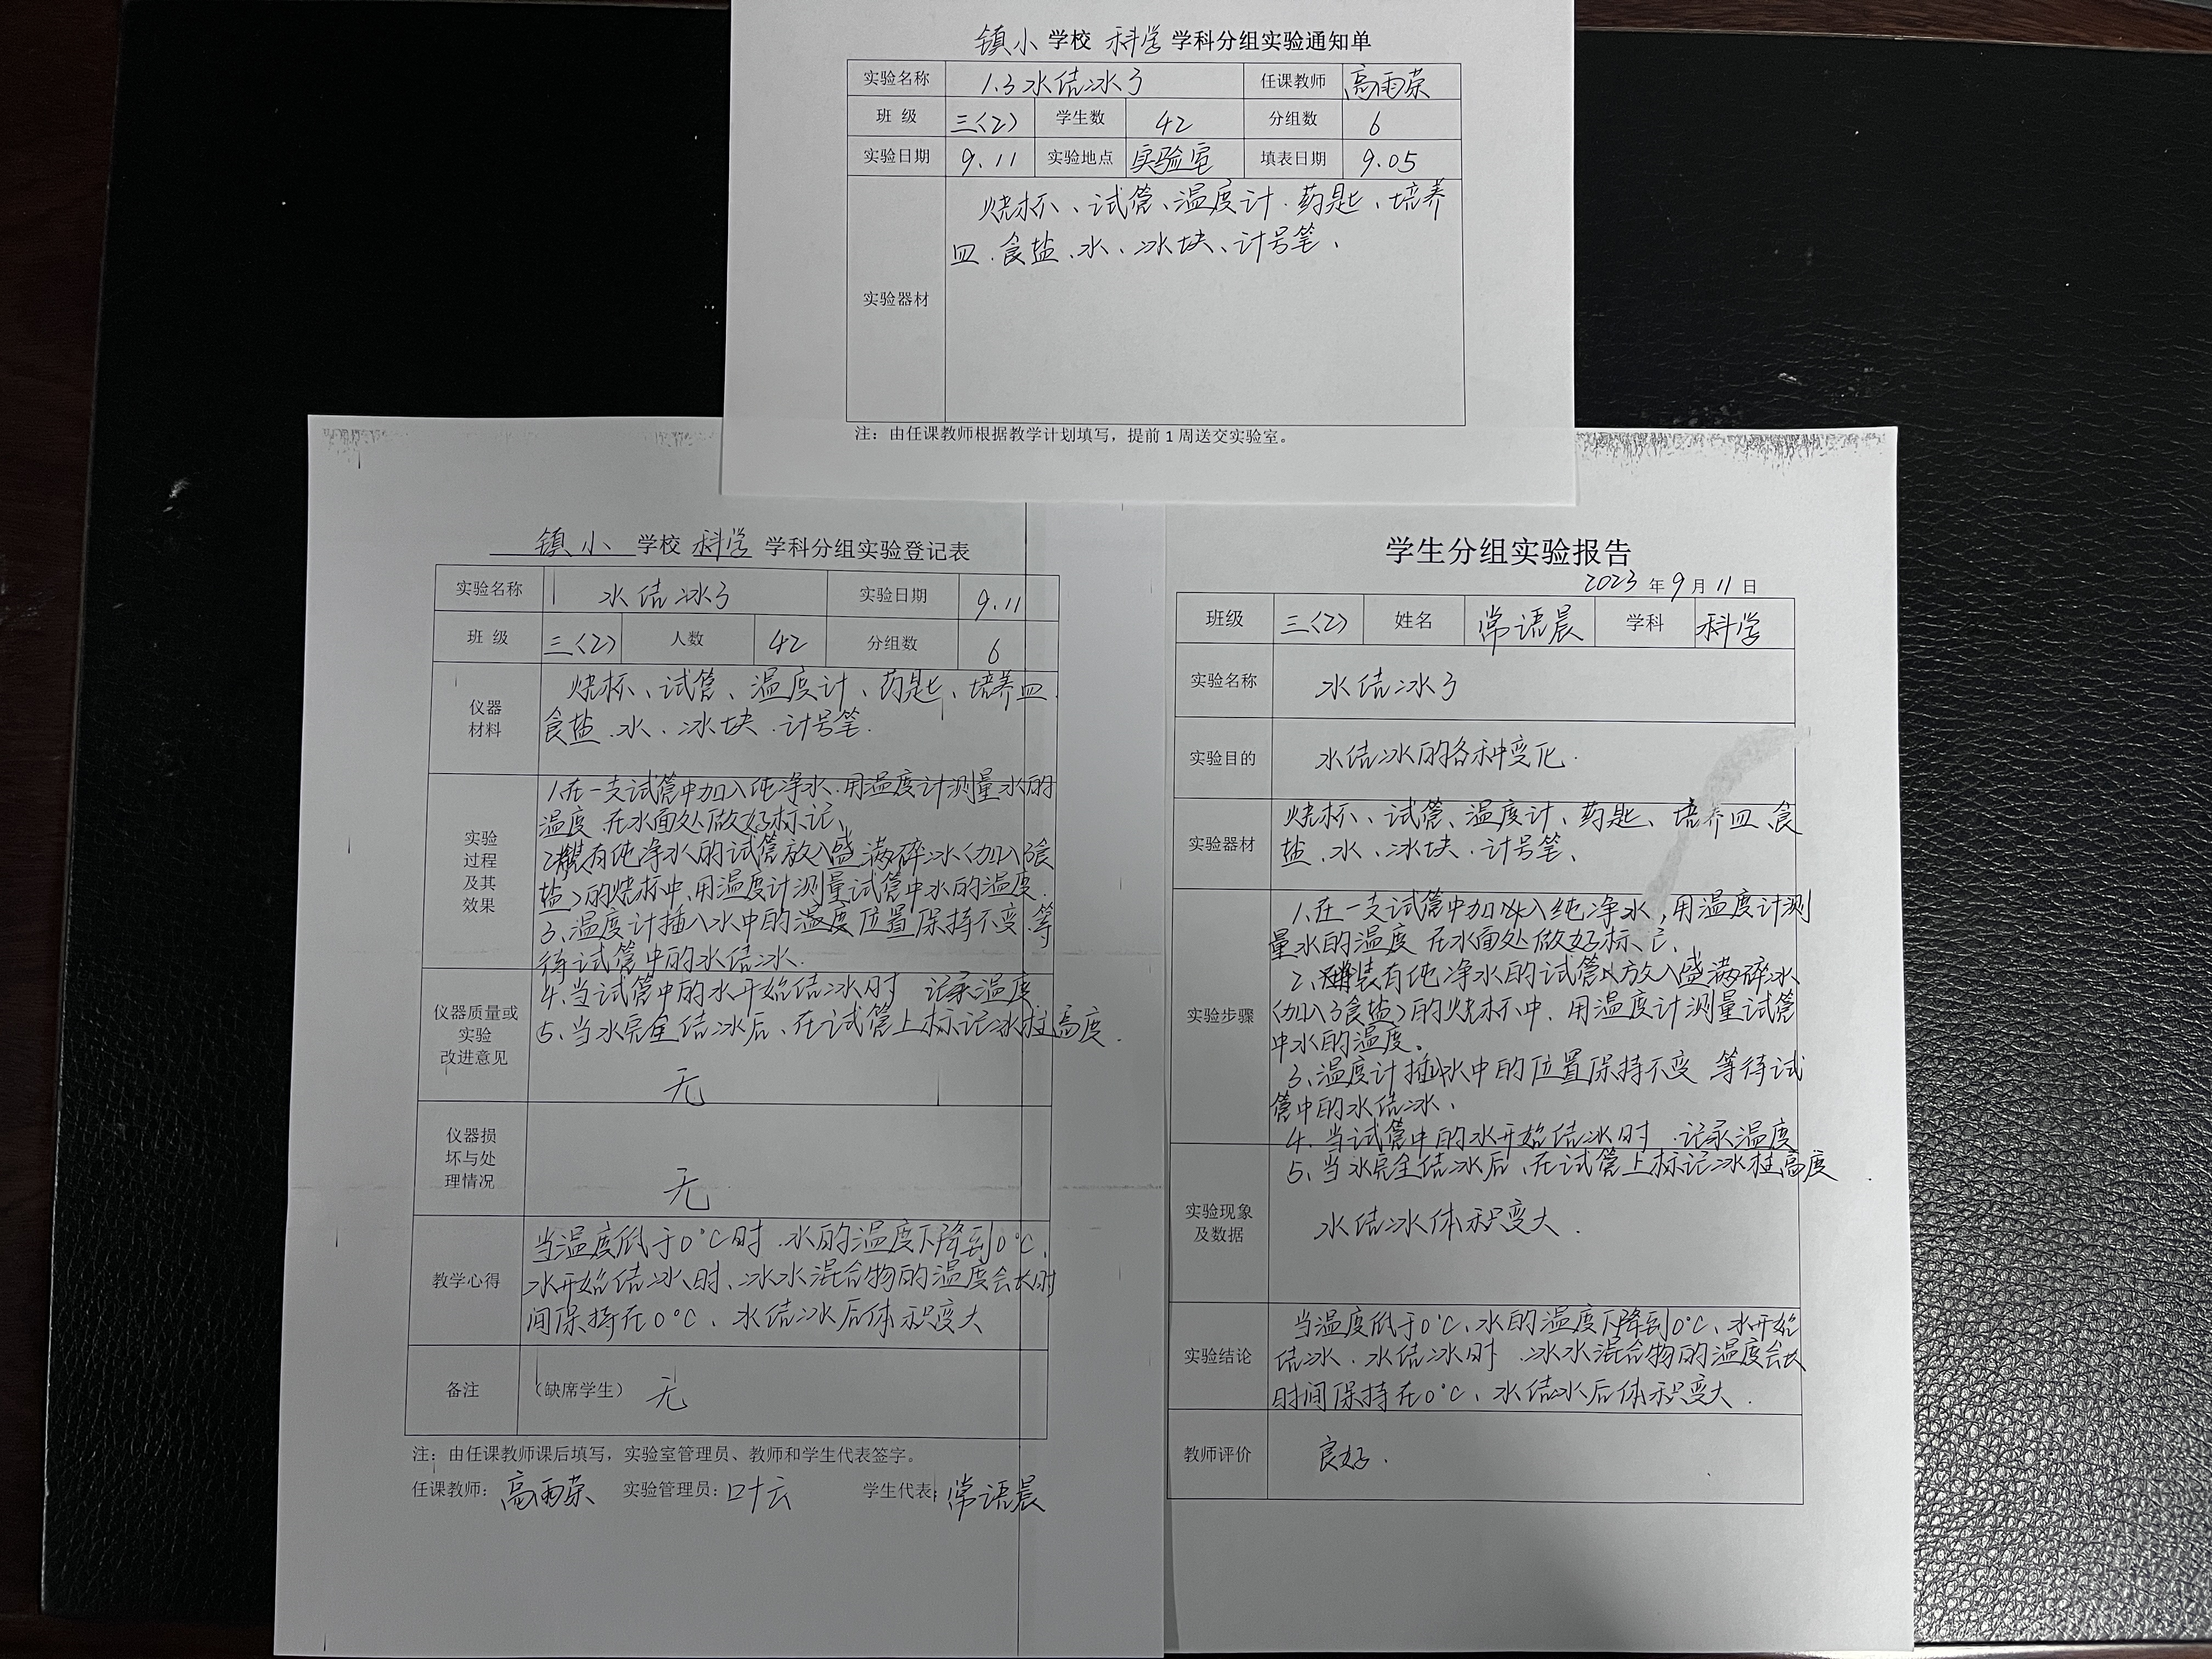 镇小 学校 科学 学科分组实验通知单
实验名称 1.3水结冰了 任课教师 高雨荣
班 级 三〈2〉 学生数 42 分组数 6
实验日期 9.11 实验地点 实验室 填表日期 9.05
实验器材
烧杯、试管、温度计、药匙、培养
皿、食盐、水、冰块、计号笔、
注：由任课教师根据教学计划填写，提前 1 周送交实验室。
镇小 学校 科学 学科分组实验登记表
实验名称 水结冰了 实验日期 9.11
班 级 三〈2〉 人数 42 分组数 6
仪器
材料
烧杯、试管、温度计、药匙、培养皿、
食盐、水、冰块、计号笔.
实验
过程
及其
效果
1.在一支试管中加入纯净水.用温度计测量水的
温度.在水面处做好标记、
2.装有纯净水的试管放入盛满碎冰〈加入了食
盐〉的烧杯中、用温度计测量试管中水的温度.
3、温度计插入水中的温度位置保持不变.等
待试管中的水结冰.
仪器质量或
实验
改进意见
4.当试管中的水开始结冰时 记录温度
5、当水完全结冰后、在试管上标记冰柱高度.
无
仪器损
坏与处
理情况
无
教学心得
当温度低于0°C时.水的温度下降到0°C、
水开始结冰时、冰水混合物的温度会长时
间保持在0°C、水结冰后体积变大
备注 （缺席学生） 无
注：由任课教师课后填写，实验室管理员、教师和学生代表签字。
任课教师：高雨荣 实验管理员：叶云 学生代表：常语晨
学生分组实验报告
2023 年 9 月 11 日
班级 三〈2〉 姓名 常语晨 学科 科学
实验名称 水结冰了
实验目的 水结冰的各种变化.
实验器材
烧杯、试管、温度计、药匙、培养皿、食
盐、水、冰块、计号笔、
实验步骤
1、在一支试管中加入纯净水,用温度计测
量水的温度 在水面处做好标记、
2、装有纯净水的试管放入盛满碎冰
〈加入了食盐〉的烧杯中.用温度计测量试管
中水的温度。
3、温度计插水中的位置保持不变 等待试
管中的水结冰、
4.当试管中的水开始结冰时.记录温度
5、当水完全结冰后、在试管上标记冰柱高度.
实验现象
及数据
水结冰体积变大.
实验结论
当温度低于0°C、水的温度下降到0°C、水开始
结冰.水结冰时.冰水混合物的温度会长
时间保持在0°C、水结冰后体积变大.
教师评价 良好.